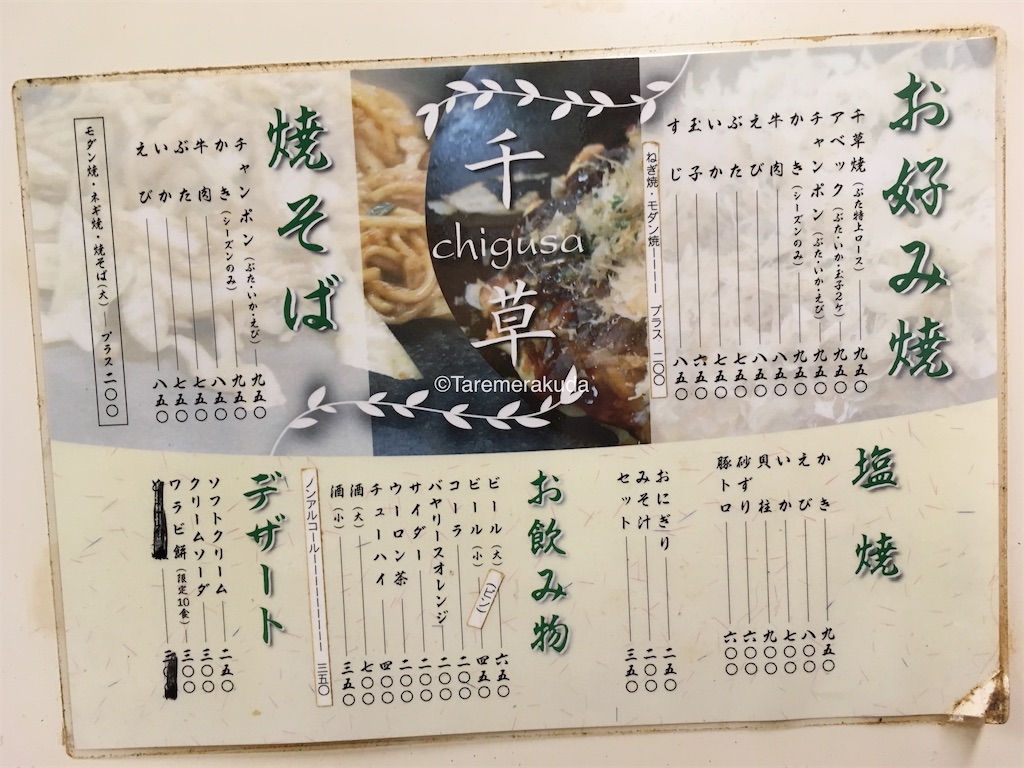 お好み焼
千草焼(ぶた特上ロース) 九五〇
アベック(ぶた・いか・玉子2ケ) 九五〇
チャンポン(ぶた・いか・えび) 九五〇
かき(シーズンのみ) 九五〇
牛肉 八五〇
えび 八五〇
ぶた 七五〇
いか 七五〇
玉子 六五〇
すじ 八五〇
ねぎ焼・モダン焼ーーー プラス 二〇〇
千草
chigusa
©Taremerakuda
焼そば
チャンポン(ぶた・いか・えび) 九五〇
かき(シーズンのみ) 九五〇
牛肉 八五〇
ぶた 七五〇
いか 七五〇
えび 八五〇
モダン焼・ネギ焼・焼そば(大) プラス二〇〇
塩焼
かき 九五〇
えび 八〇〇
いか 七〇〇
貝柱 九〇〇
砂ずり 六〇〇
豚トロ 六〇〇
おにぎり 二五〇
みそ汁 二〇〇
セット 三五〇
お飲み物
ビール(大) (ビン) 六五〇
ビール(小) 四五〇
コーラ 二〇〇
バヤリースオレンジ 二〇〇
サイダー 二〇〇
ウーロン茶 二〇〇
チューハイ 四〇〇
酒(大) 七〇〇
酒(小) 三五〇
ノンアルコールーーーーーーー 三五〇
デザート
ソフトクリーム 二五〇
クリームソーダ 三〇〇
ワラビ餅(限定10食) 三〇〇